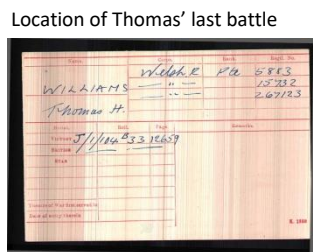 Location of Thomas' last battle
Name. Corps. Rank. Regtl. No.
Welsh R Pte 5883
WILLIAMS — " — 15732
Thomas H. — " — 267123
Medal. Roll. Page. Remarks.
VICTORY J/1/104 B33 12659
BRITISH
STAR
Theatre of War first served in
Date of entry therein
K. 1380